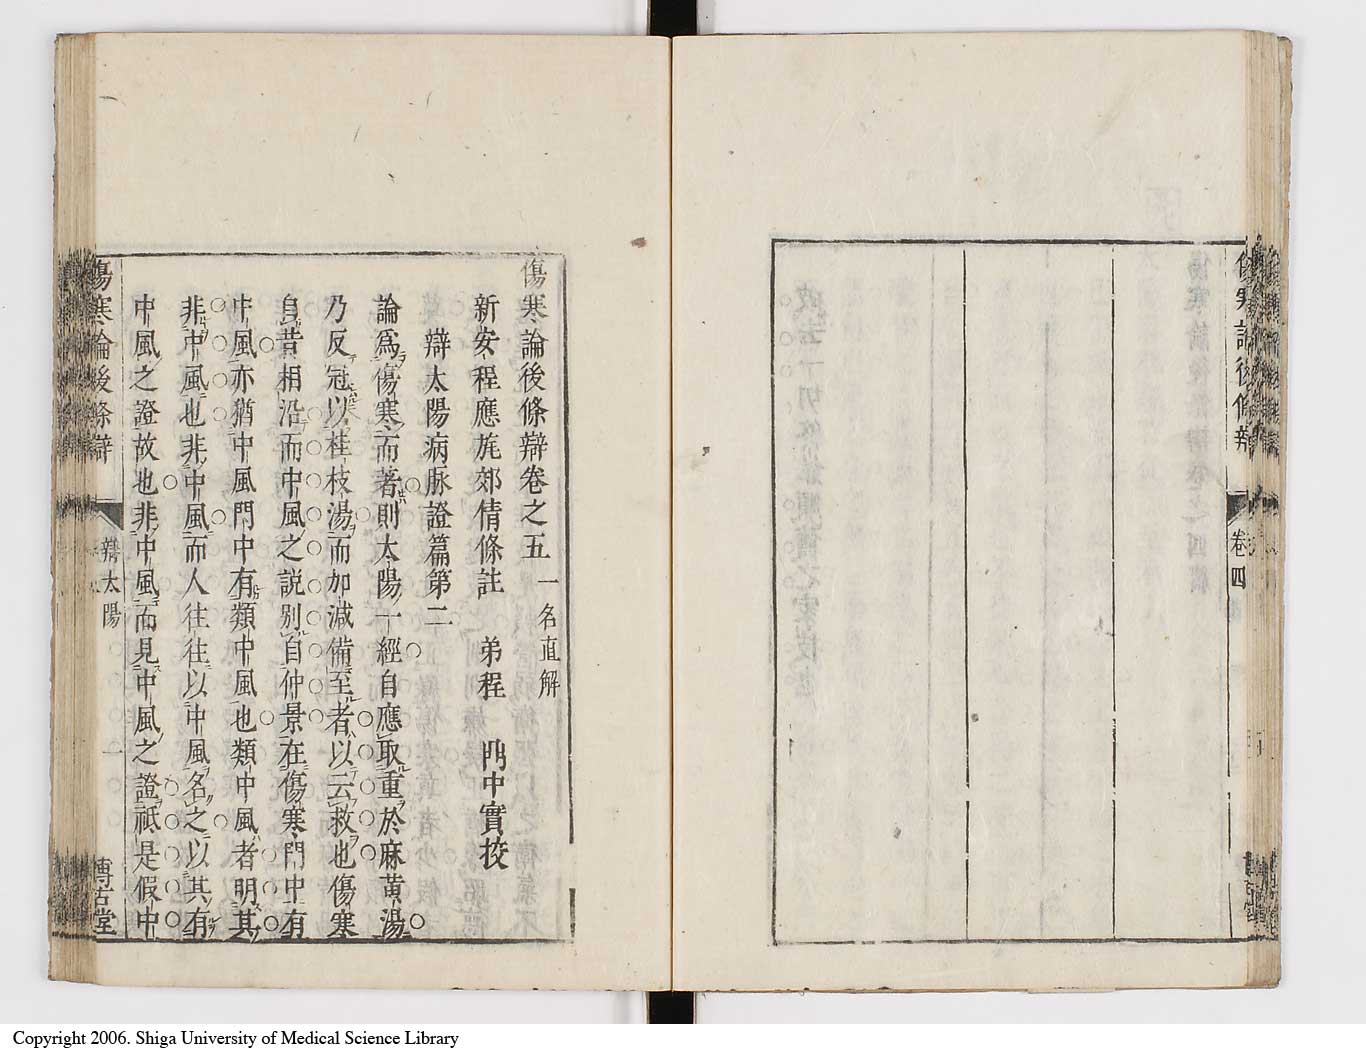 傷寒論後條辯
卷四
傷寒論後條辯卷之五 一名直解
新安程應旄郊倩條註 弟程 門中實挍
辯太陽病脉證篇第二
論爲傷寒而著則太陽一經自應取重於麻黃湯
乃反冠以桂枝湯而加減備至者以云救也傷寒
自昔相沿而中風之説别自仲景在傷寒門中有
中風亦猶中風門中有類中風也類中風者明其
非中風也非中風而人往往以中風名之以其有
中風之證故也非中風而見中風之證祇是假中
傷寒論後條辯
辯太陽
博古堂
Copyright 2006. Shiga University of Medical Science Library